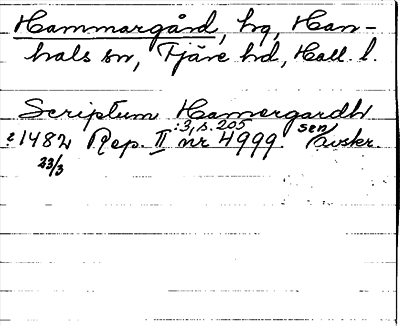 Hammargård, hg, Han-
hals sn, Fjäre hd, Hall. l.
Scriptum Hamergardh
1482 Rep. II :3, s. 205 nr 4999. sen avskr.
23/3